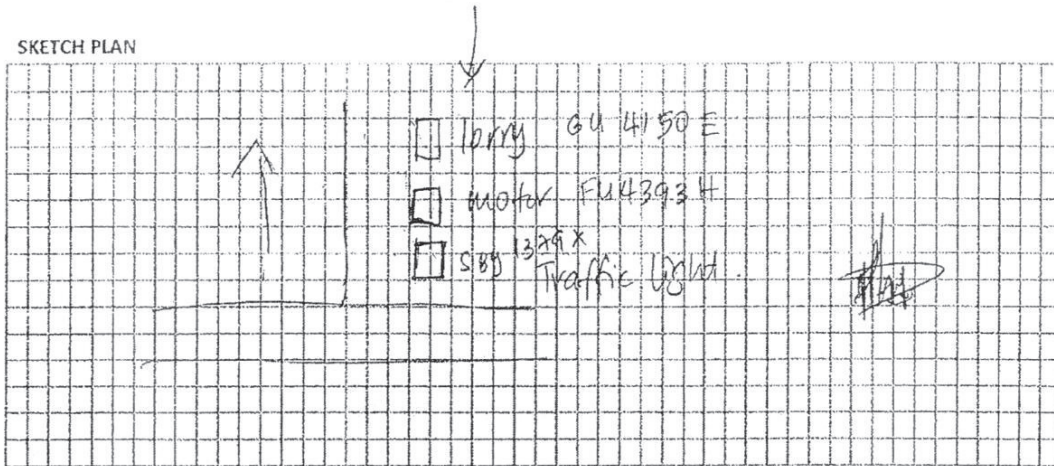 SKETCH PLAN
lorry GU 4150 E
motor FU4393H
Traffic light.